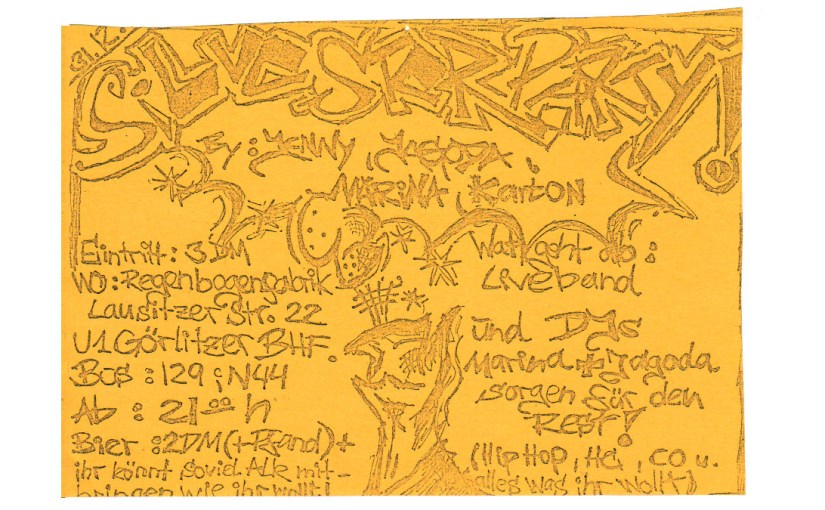 31.2.
SiLVESTER PARTY!
By: JENNY, JAGODA,
MARINA, Karton
Eintritt: 3 DM
WO: Regenbogenfabrik
Lausitzer Str. 22
U1 Görlitzer BHF.
Bus: 129; N44
Ab: 21°° h
Bier: 2DM (+Pfand) +
ihr könnt soviel Alk mit-
bringen wie ihr wollt!
Watt geht ab:
Liveband
und DJs
Marina + Jagoda
sorgen für den
Rest!
(Hip Hop, Hei, CO u.
alles was ihr wollt)